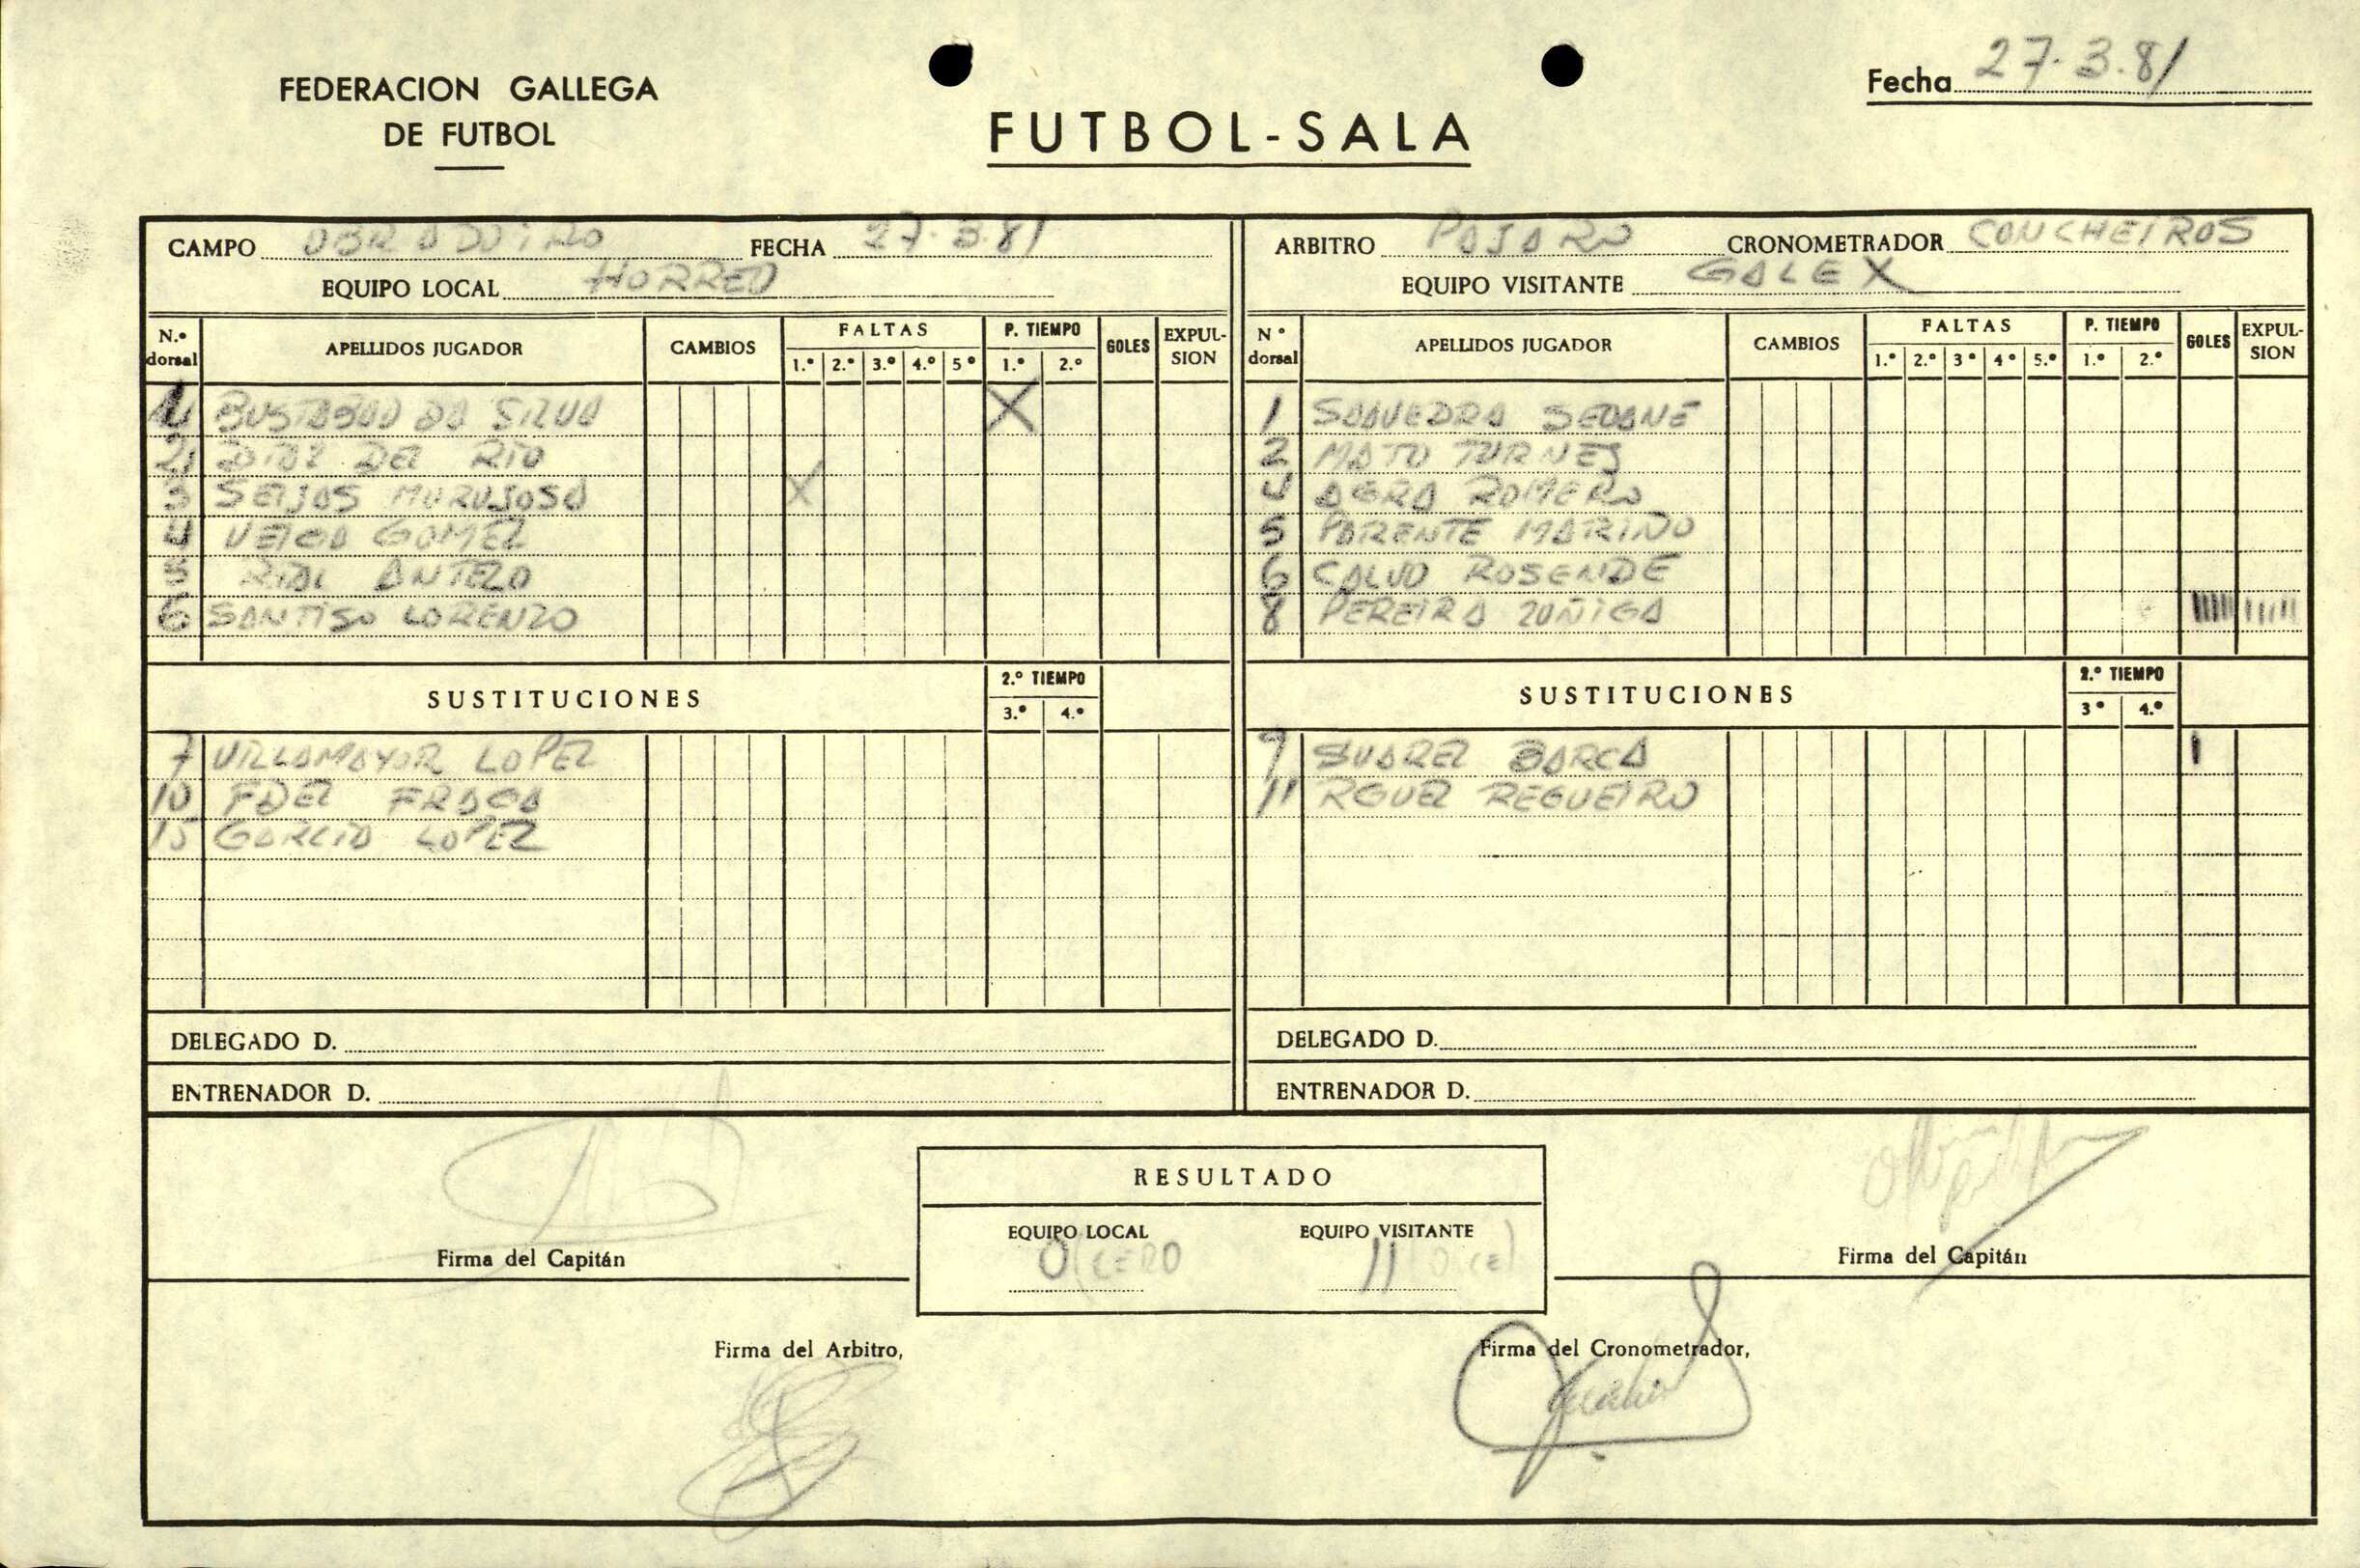 FEDERACION GALLEGA
DE FUTBOL
FUTBOL-SALA
Fecha 27.3.81
CAMPO OBRADOIRO FECHA 27.3.81
EQUIPO LOCAL HORREO
N.º dorsal APELLIDOS JUGADOR CAMBIOS FALTAS 1.º 2.º 3.º 4.º 5º P. TIEMPO 1.º 2.º GOLES EXPULSION
1 BUSTABAD DA SILVA X
2 DIAZ DEL RIO
3 SEIJAS MURUJOSA X
4 VEIGA GOMEZ
5 RIAL ANTELO
6 SANTISO LORENZO
SUSTITUCIONES 2.º TIEMPO 3.º 4.º
7 VILLAMAYOR LOPEZ
10 FDEZ FRAGA
15 GARCIA LOPEZ
DELEGADO D.
ENTRENADOR D.
ARBITRO PAJARO CRONOMETRADOR CONCHEIROS
EQUIPO VISITANTE GALEX
N º dorsal APELLIDOS JUGADOR CAMBIOS FALTAS 1.º 2.º 3º 4º 5.º P. TIEMPO 1.º 2.º GOLES EXPULSION
1 SAAVEDRA SEOANE
2 MATO TURNES
4 AGRA ROMERO
5 PARENTE MARIÑO
6 CALVO ROSENDE
8 PEREIRA ZUÑIGA
SUSTITUCIONES 2.º TIEMPO 3º 4.º
9 SUAREZ BARCA
11 RGUEZ REGUEIRO
DELEGADO D.
ENTRENADOR D.
RESULTADO
EQUIPO LOCAL EQUIPO VISITANTE
0 (CERO 11 (ONCE)
Firma del Capitán
Firma del Capitán
Firma del Arbitro,
Firma del Cronometrador,